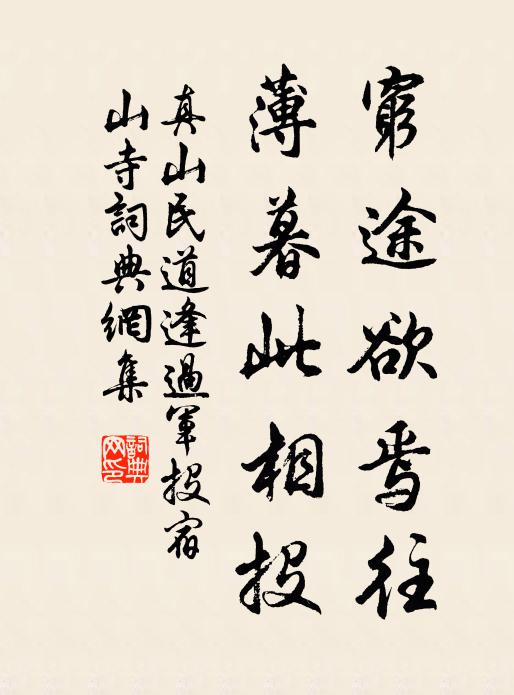 窮途欲焉往
薄暮此相投
真山民道逢過軍投宿
山寺詞典網集
詞典網印